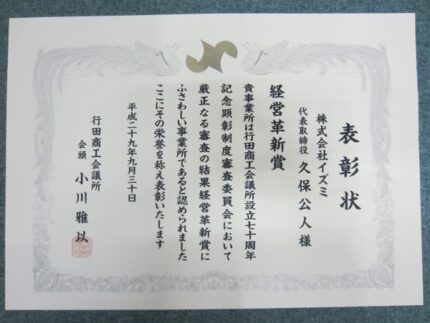 表彰状
株式会社イズミ
代表取締役 久保公人様
経営革新賞
貴事業所は行田商工会議所設立七十周年
記念顕彰制度審査委員会において
厳正なる審査の結果経営革新賞に
ふさわしい事業所であると認められました
ここにその栄誉を称え表彰いたします
平成二十九年九月三十日
行田商工会議所
会頭 小川雅以